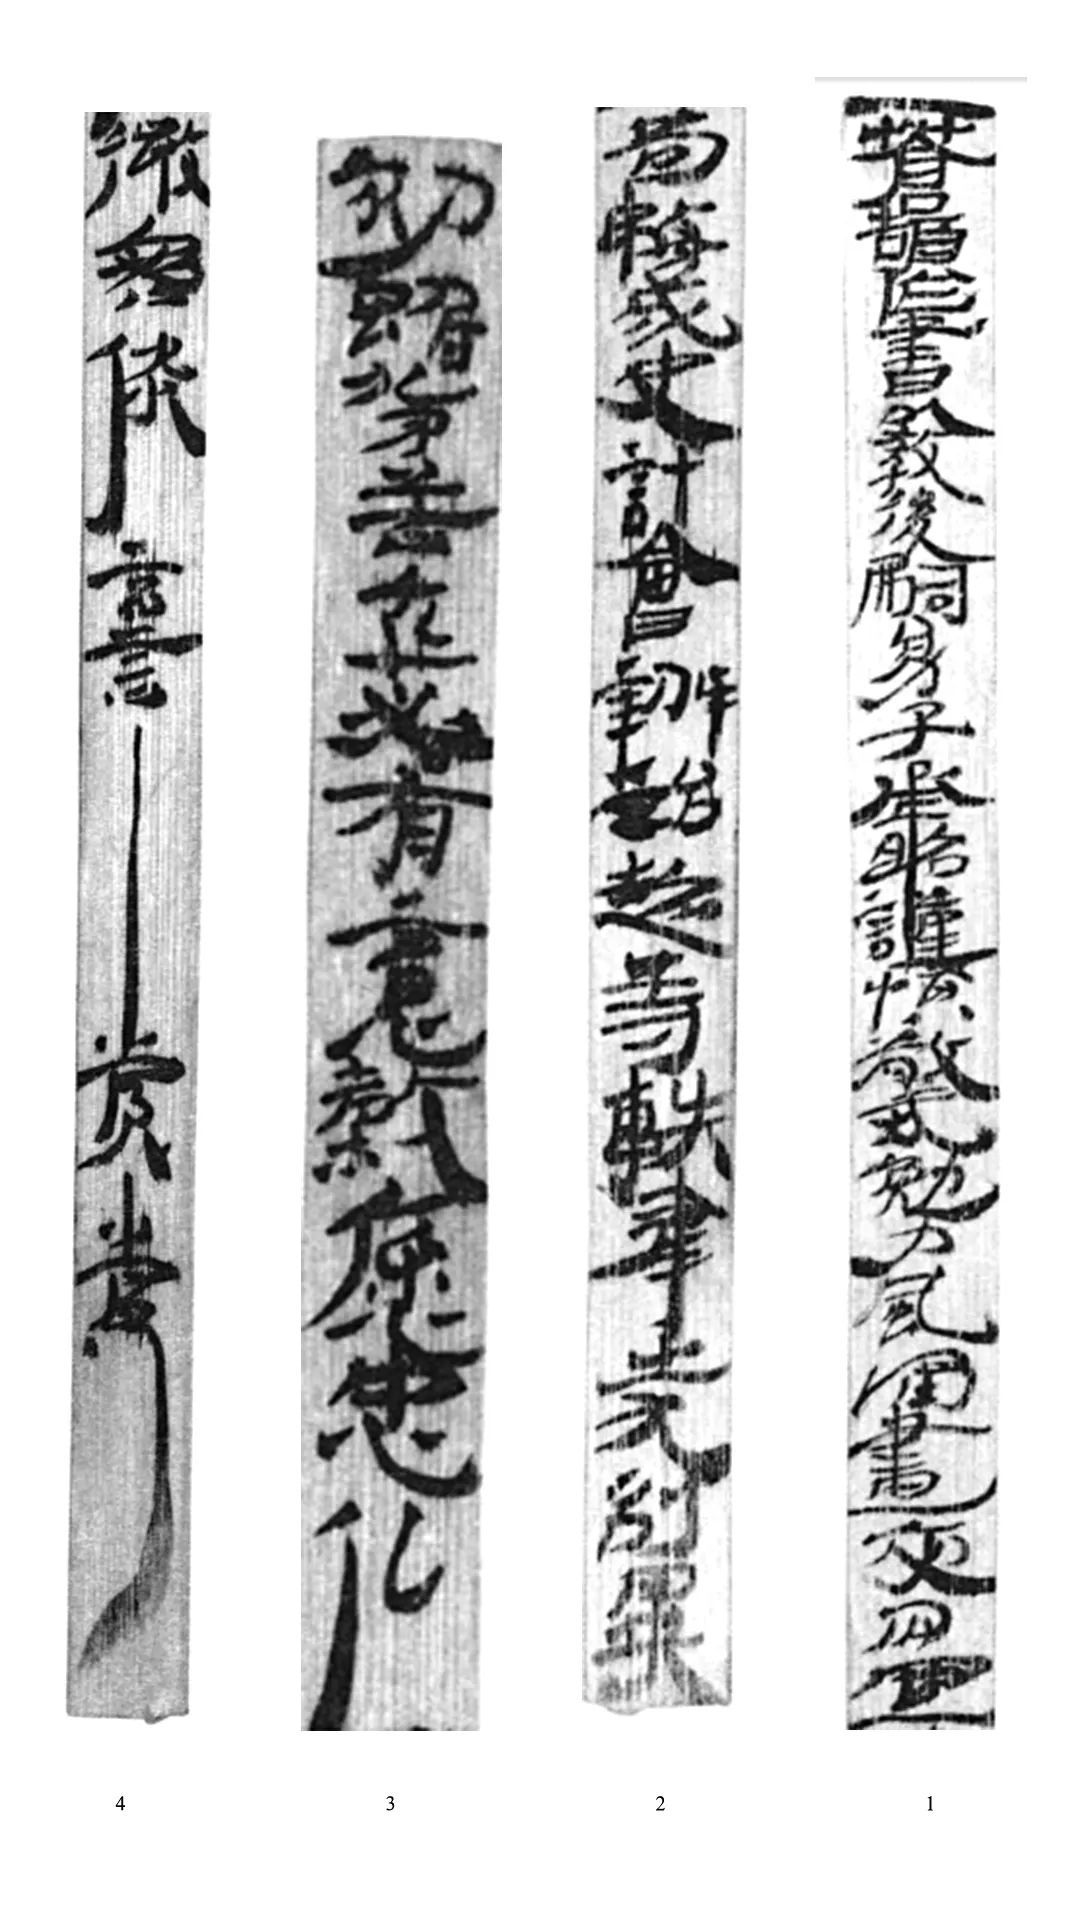 蒼頡作書以教後嗣幼子承昭謹慎敬戒勉力風誦晝夜勿置
苟務成史計會辨治超等軼群出尤別異
初雖勞苦卒必有意愨愿忠信
微密倓言言賞賞
4 3 2 1